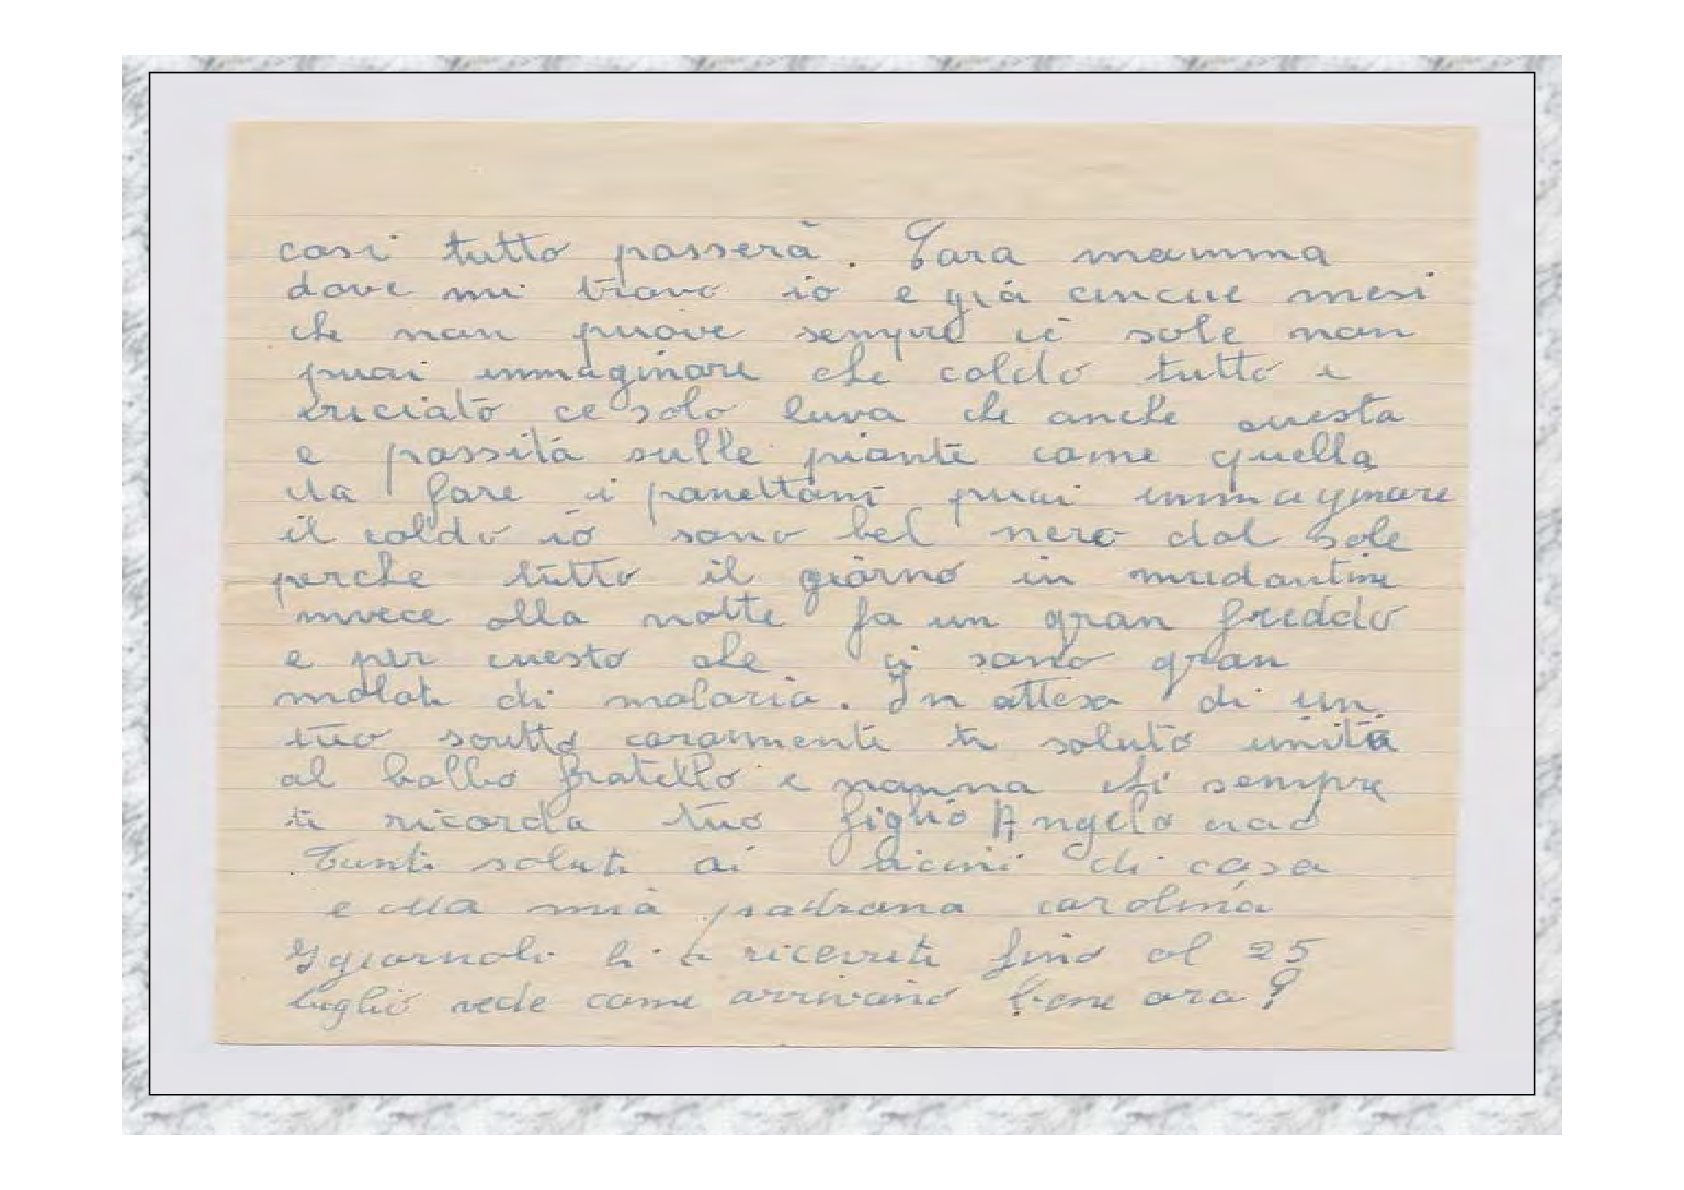 cosi tutto passerà. Cara mamma
dove mi trovo io e già cincue mesi
che non piove sempre il sole non
puoi immaginare che caldo tutto e
bruciato ce solo luva che anche questa
e passita sulle piante come quella
da fare i panettoni puoi immaginare
il caldo io sono bel nero dal sole
perche tutto il giorno in mudantine
invece alla notte fa un gran freddo
e per cuesto che ci sono gran
malati di malaria. In attesa di un
tuo scritto caramente ti saluto unita
al babbo fratello e nonna chi sempre
ti ricorda tuo figlio Angelo ciao
Tanti saluti ai vicini di casa
e alla mia padrona carolina
I giornali li ricevuti fino al 25
luglio vede come arrivano bene ora?